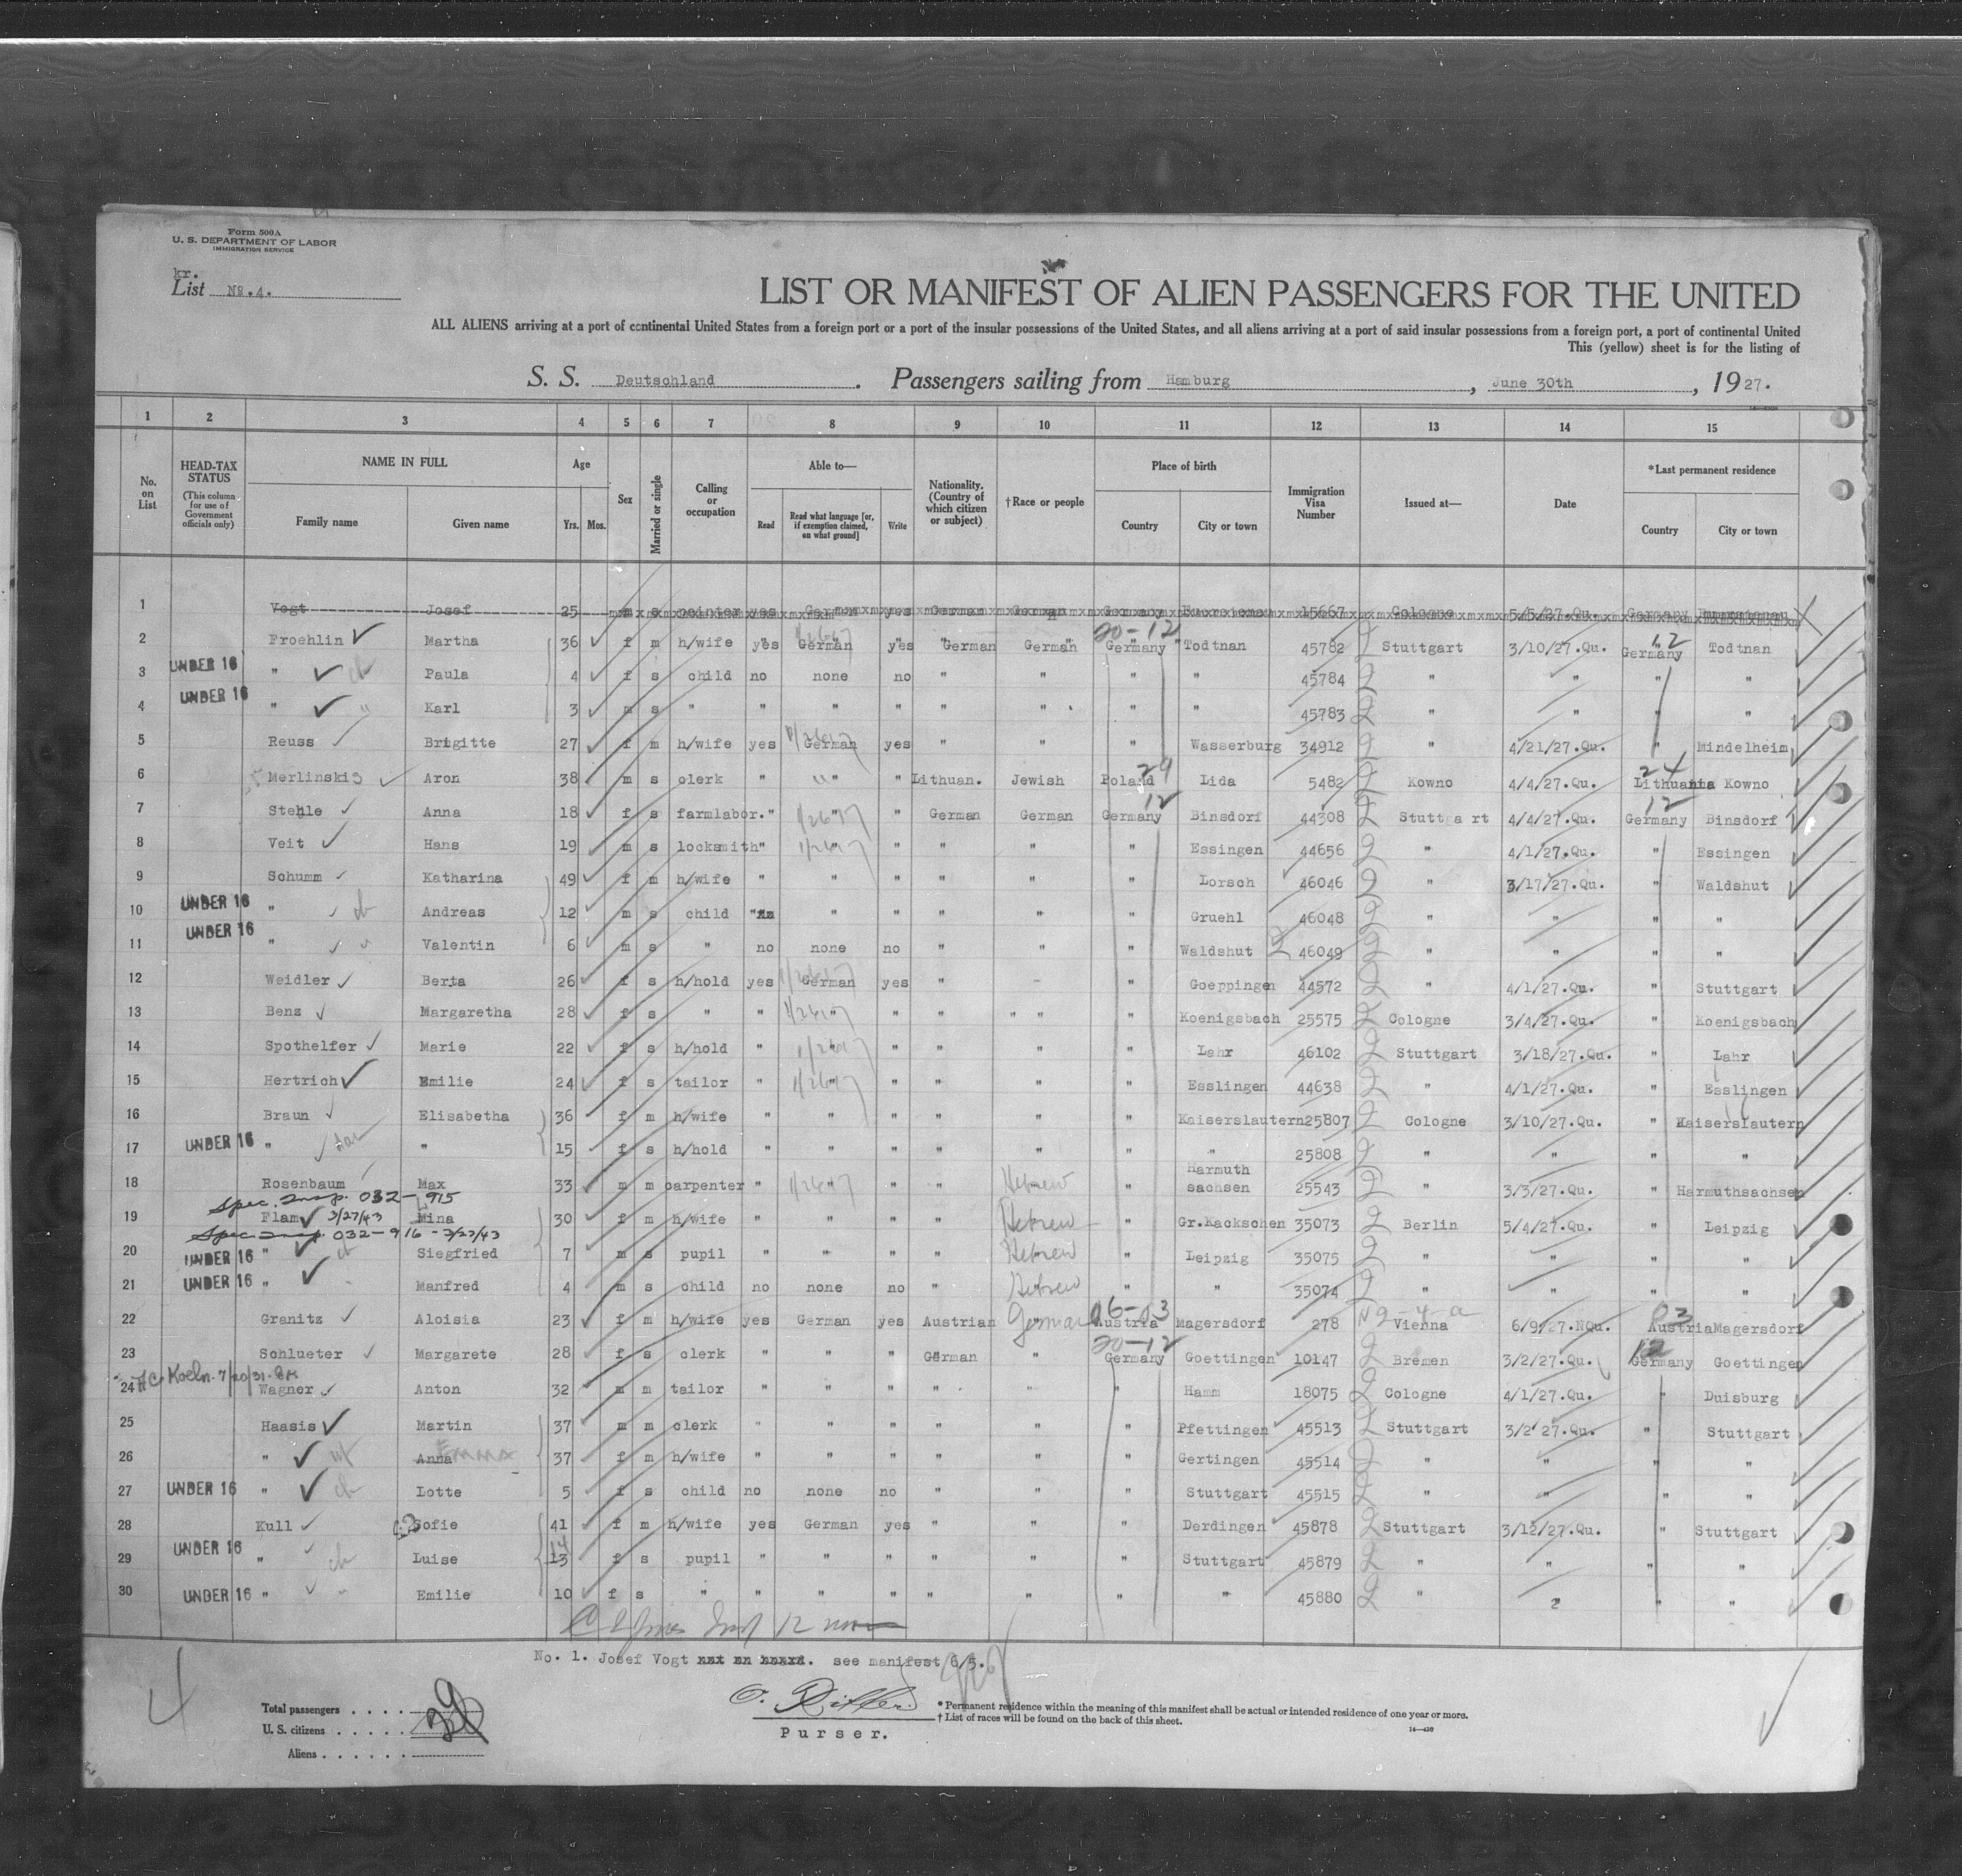 Form 500A
U. S. DEPARTMENT OF LABOR
IMMIGRATION SERVICE
kr.
List No. 4.
LIST OR MANIFEST OF ALIEN PASSENGERS FOR THE UNITED
ALL ALIENS arriving at a port of continental United States from a foreign port or a port of the insular possessions of the United States, and all aliens arriving at a port of said insular possessions from a foreign port, a port of continental United
This (yellow) sheet is for the listing of
S. S. Deutschland . Passengers sailing from Hamburg , June 30th , 1927.
1 2 3 4 5 6 7 8 9 10 11 12 13 14 15
No. on List
HEAD-TAX STATUS (This column for use of Government officials only)
NAME IN FULL Family name Given name
Age Yrs. Mos.
Sex
Married or single
Calling or occupation
Able to— Read Read what language [or, if exemption claimed, on what ground] Write
Nationality. (Country of which citizen or subject)
†Race or people
Place of birth Country City or town
Immigration Visa Number
Issued at—
Date
*Last permanent residence Country City or town
1 Vogt Josef 25 m s yes German yes German German Germany 15667 Cologne 5/5/27.Qu. Germany
2 Froehlin Martha 36 f m h/wife yes German yes German German Germany Todtnan 45782 Stuttgart 3/10/27.Qu. Germany Todtnan
20-12 12
3 UNDER 16 " ch Paula 4 f s child no none no " " " " 45784 " " " "
4 UNDER 16 " " Karl 3 m s " " " " " " " " 45783 " " " "
5 Reuss Brigitte 27 f m h/wife yes German yes " " " Wasserburg 34912 " 4/21/27.Qu. " Mindelheim
6 Merlinskis Aron 38 m s clerk " " " Lithuan. Jewish Poland Lida 5482 Kowno 4/4/27.Qu. Lithuania Kowno
29 24
7 Stehle Anna 18 f s farmlabor. " " " German German Germany Binsdorf 44308 Stuttgart 4/4/27.Qu. Germany Binsdorf
12 12
8 Veit Hans 19 m s locksmith " " " " " " Essingen 44656 " 4/1/27.Qu. " Essingen
9 Schumm Katharina 49 f m h/wife " " " " " " Lorsch 46046 " 3/17/27.Qu. " Waldshut
10 UNDER 16 " ch Andreas 12 m s child " " " " " " Gruehl 46048 " " " "
11 UNDER 16 " " Valentin 6 m s " no none no " " " Waldshut 46049 " " " "
12 Weidler Berta 26 f s h/hold yes German yes " - " Goeppingen 44572 " 4/1/27.Qu. " Stuttgart
13 Benz Margaretha 28 f s " " " " " " " " Koenigsbach 25575 Cologne 3/4/27.Qu. " Koenigsbach
14 Spothelfer Marie 22 f s h/hold " " " " " " Lahr 46102 Stuttgart 3/18/27.Qu. " Lahr
15 Hertrich Emilie 24 f s tailor " " " " " " Esslingen 44638 " 4/1/27.Qu. " Esslingen
16 Braun Elisabetha 36 f m h/wife " " " " " " Kaiserslautern 25807 Cologne 3/10/27.Qu. " Kaiserslautern
17 UNDER 16 " " 15 f s h/hold " " " " " " " 25808 " " " "
18 Rosenbaum Max 33 m m carpenter " " " " Hebrew " Harmuth sachsen 25543 " 3/3/27.Qu. " Harmuthsachsen
Spec. Insp. 032-915
19 Flam 3/27/43 Mina 30 f m h/wife " " " " Hebrew " Gr.Kackschen 35073 Berlin 5/4/27.Qu. " Leipzig
Spec. Insp. 032-916 - 3/27/43
20 UNDER 16 " ch Siegfried 7 m s pupil " " " " Hebrew " Leipzig 35075 " " " "
21 UNDER 16 " " Manfred 4 m s child no none no " Hebrew " " 35074 " " " "
22 Granitz Aloisia 23 f m h/wife yes German yes Austrian German Austria Magersdorf 278 Vienna 6/9/27.NQu. Austria Magersdorf
06-03 N2-4-a 03
23 Schlueter Margarete 28 f s clerk " " " German " Germany Goettingen 10147 Bremen 3/2/27.Qu. Germany Goettingen
20-12 12
Koeln 7/20/31
24 Wagner Anton 32 m m tailor " " " " " " Hamm 18075 Cologne 4/1/27.Qu. " Duisburg
25 Haasis Martin 37 m m clerk " " " " " " Pfettingen 45513 Stuttgart 3/2 27.Qu. " Stuttgart
26 " wf Anna Emma 37 f m h/wife " " " " " " Gertingen 45514 " " " "
27 UNDER 16 " ch Lotte 5 f s child no none no " " " Stuttgart 45515 " " " "
28 Kull Sofie 41 f m h/wife yes German yes " " " Derdingen 45878 Stuttgart 3/12/27.Qu. " Stuttgart
29 UNDER 16 " ch Luise 13 14 f s pupil " " " " " " Stuttgart 45879 " " " "
30 UNDER 16 " " Emilie 10 f s " " " " " " " " 45880 " " " "
No. 1. Josef Vogt not on board. see manifest 6/5.
Total passengers 29
U. S. citizens
Aliens
4
O. Ritter
Purser.
* Permanent residence within the meaning of this manifest shall be actual or intended residence of one year or more.
† List of races will be found on the back of this sheet.
14—430